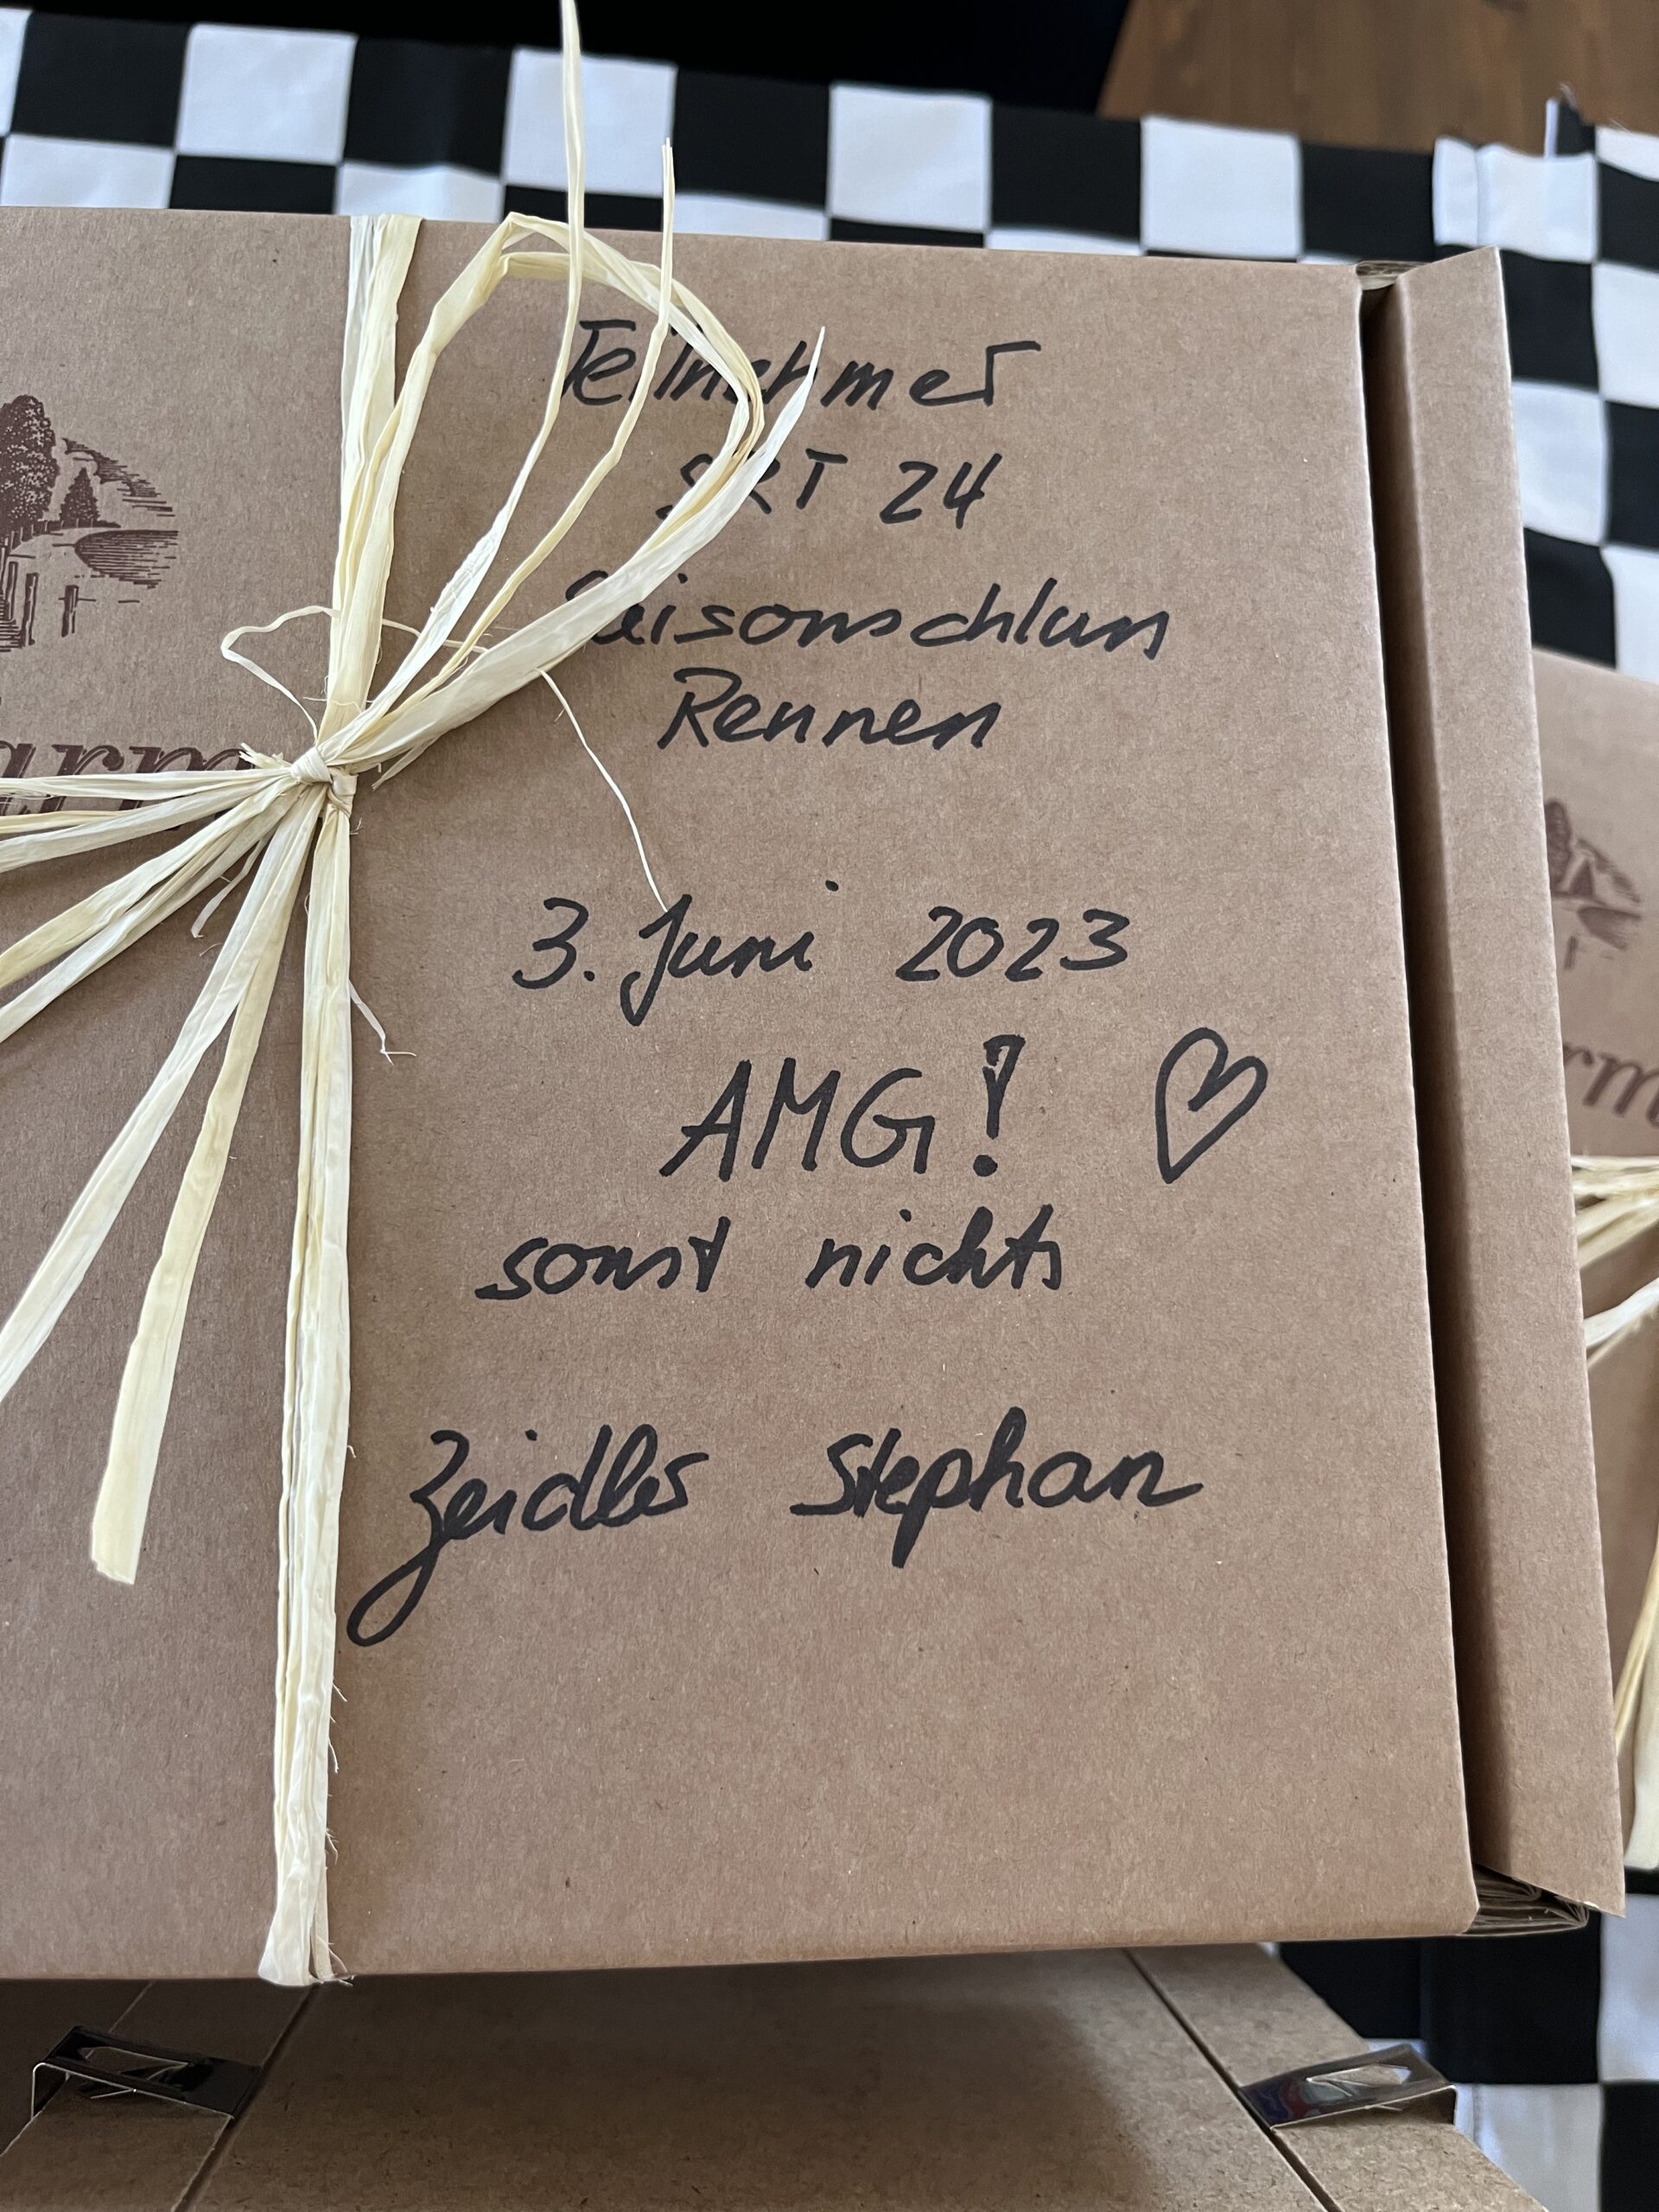 Teilnehmer
SRT 24
Saisonschluss
Rennen
3. Juni 2023
AMG!
sonst nichts
Zeidler Stephan